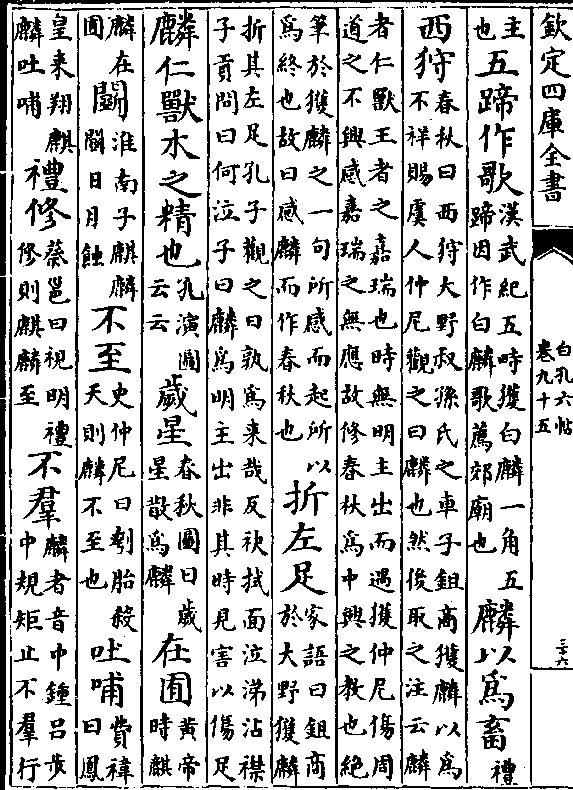 欽定四庫全書
白孔六帖
卷九十五
三十六
主也五蹄作歌漢武紀五時獲白麟一角五蹄因作白麟歌薦郊廟也麟以為畜禮
西狩春秋曰西狩大野叔孫氏之車子鉏商獲麟以為不祥賜虞人仲尼觀之曰麟也然後取之注云麟
者仁獸王者之嘉瑞也時無明主出而遇獲仲尼傷周道之不興感嘉瑞之無應故修春秋為中興之教也絕
筆於獲麟之一句所感而起所以為終也故曰感麟而作春秋也折左足家語曰鉏商於大野獲麟
折其左足孔子觀之曰孰為来哉反袂拭面泣涕沾襟子貢問曰何泣子曰麟為明主出非其時見害以傷足
麟仁獸水之精也孔演圖云云歲星春秋圖曰歲星散為麟在囿黄帝時麒
麟在囿鬭淮南子麒麟鬭日月蝕不至史仲尼曰刳胎殺夭則麟不至也吐哺費禕曰鳳
皇来翔麒麟吐哺禮修蔡邕曰視明禮修則麒麟至不羣麟者音中鍾吕步中規矩止不羣行